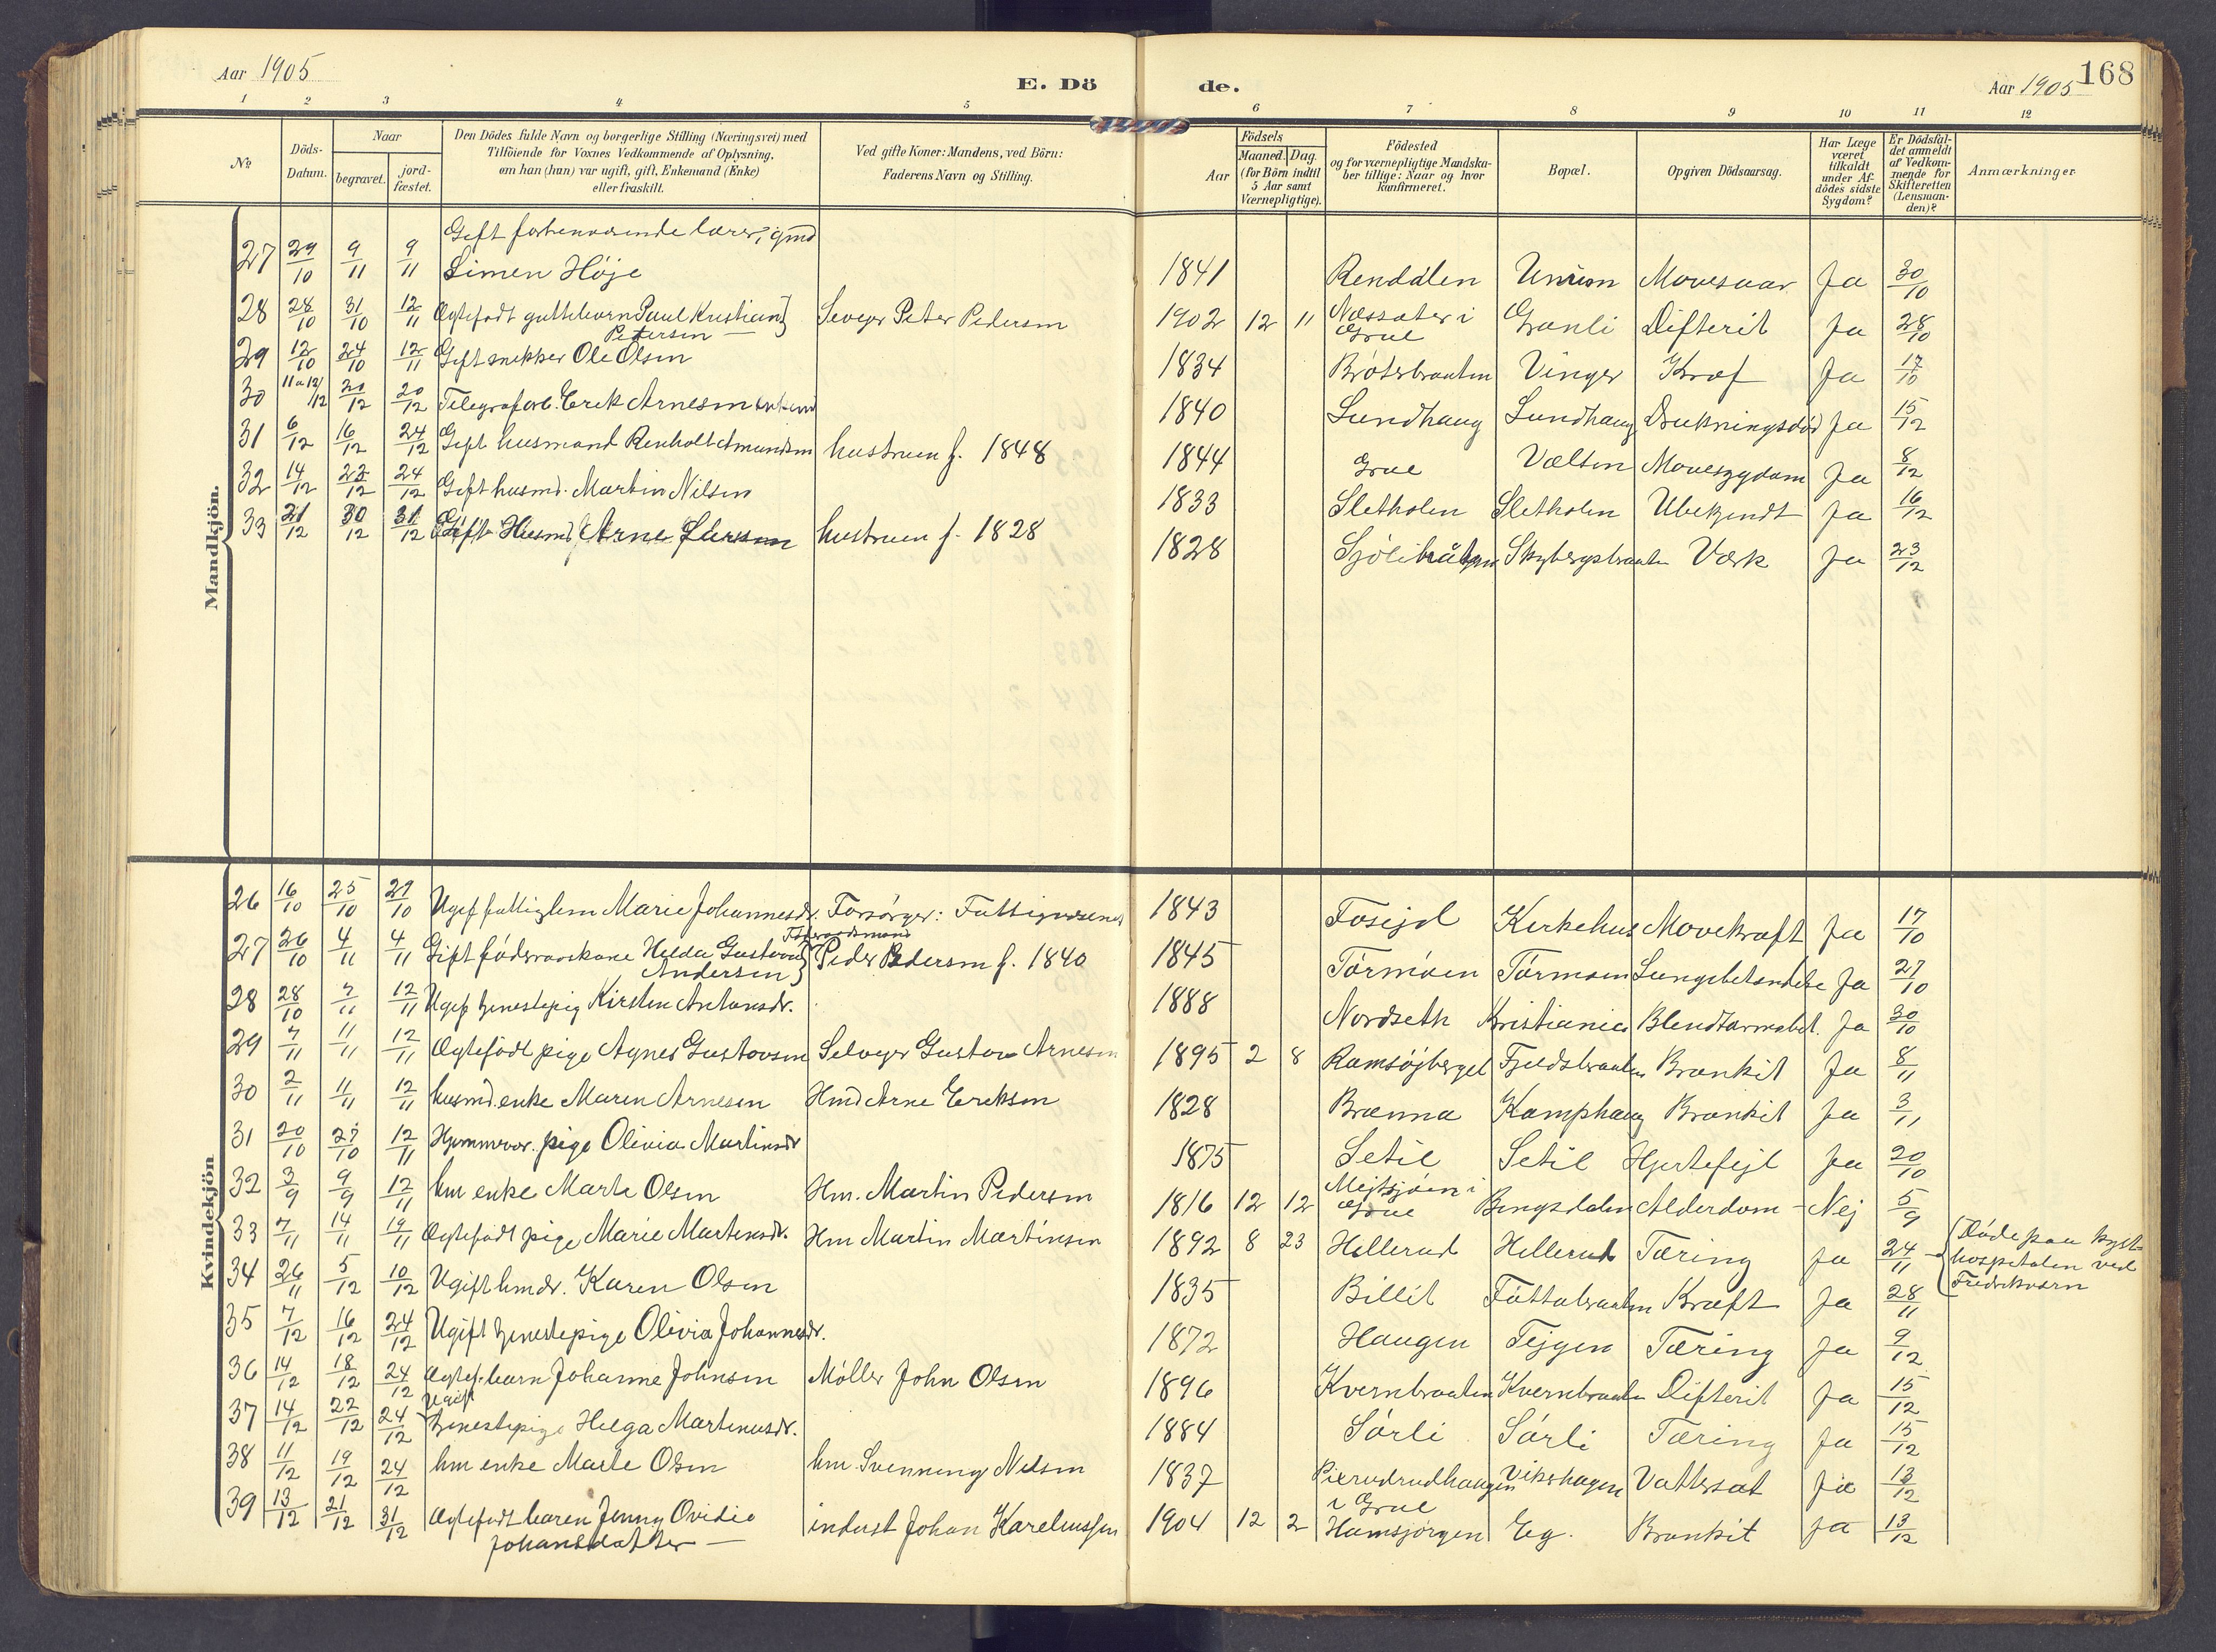 Aar 1905
E. Dö
de.
Aar 1905
168
1 2 3 4 5 6 7 8 9 10 11 12
No
Döds-Datum.
Naar
begravet.
jord-fæstet.
Den Dödes fulde Navn og borgerlige Stilling (Næringsvei) med
Tilföiende for Voxnes Vedkommende af Oplysning,
om han (hun) var ugift, gift, Enkemand (Enke)
eller fraskilt.
Ved gifte Koner: Mandens, ved Börn:
Faderens Navn og Stilling.
Födsels
Aar
Maaned. Dag.
(for Börn indtil
5 Aar samt
Værnepligtige).
Födested
og for værnepligtige Mandska-
ber tillige: Naar og hvor
konfirmeret.
Bopæl.
Opgiven Dödsaarsag.
Har Læge
været
tilkaldt
under Af-
dödes sidste
Sygdom?
Er Dödsfal-
det anmeldt
af Vedkom-
mende for
Skifteretten
(Lensman-
den)?
Anmærkninger
Mandkjön.
Gift forhenværende lærer, gmd
27 29/10 9/11 9/11 Simen Höje 1841 Rendalen Mavesaar Ja 30/10
28 28/10 31/10 12/11 Ægtefødt guttebarn Paul Kristian Selvejer Peter Pedersen 1902 12 11 Næssæter i Granli Difterit Ja 28/10
Petersen
Grue
29 12/10 24/10 12/11 Gift snekker Ole Olsen 1834 Bråterbraaten Vinger Kræf Ja 17/10
30 11 a 12/12 20/12 20/12 Telegrafarb. Erik Arnesen 1840 Lundhaug Lundhaug Drukningsdød Ja 15/12
31 6/12 16/12 24/12 Gift husmand Renholt Amundsen hustruen f. 1848 1844 Grue Vælten Mavesygdom Ja 8/12
32 14/12 23/12 24/12 Gift husmd. Martin Nilsen 1833 Sletholen Sletholen Ubekjendt Ja 16/12
33 21/12 30/12 31/12 Gift Husmd Arne Larsen hustruen f. 1828 1828 Skybergsbraaten Værk Ja 23/12
Kvindekjön
26 16/10 25/10 29/10 Ugift fattiglem Marie Johannesdr. Forsörger: Fattigvæsenet 1843 Fosejd Kirkehus Mavekræft Ja 17/10
27 26/10 4/11 4/11 Gift föderaadskone Hilda Gustava Peder Pedersen f. 1840 1845 Törmoen Törmoen Lungebetændelse Ja 27/10
Andersen
28 28/10 7/11 12/11 Ugift tjenestepig Kirsten Antonsdr. 1888 Nordseth Kristiania Blendtarmsbet. Ja 30/10
29 7/11 11/11 12/11 Ægtefödt pige Agnes Gustavsen Selvejer Gustav Arnesen 1895 2 8 Ramsöjberget Fjeldsbraaten Bronkit Ja 8/11
30 2/11 11/11 12/11 husmd. enke Maren Arnesen Hmd Arne Eriksen 1828 Brænna Kamphaug Bronkit Ja 3/11
31 20/10 27/10 12/11 Hjemmevær. pige Olivia Martinsdr 1875 Setil Setil Hjertefejl Ja 20/10
32 3/9 9/9 12/11 hm enke Marte Olsen Hm. Martin Pedersen 1816 12 12 Mejtsjøen i Bingsdalen Alderdom - Nej 5/9
Grue
33 7/11 14/11 19/11 Ægtefödt pige Marie Martinsdr. Hm Martin Martinsen 1892 8 23 Hellerud Hellerud Tæring Ja 24/11
Döde paa kyst-
hospitalen ved
Fredriksværn
34 26/11 5/12 10/12 Ugift hmdr. Karen Olsen 1835 Billit Kræft Ja 28/11
35 7/12 16/12 24/12 Ugift tjenestepige Olivia Johannesdr. 1872 Haugen Tejgen Tæring Ja 9/12
36 14/12 18/12 24/12 Ægtef. barn Johanne Johnsen Möller John Olsen 1896 Kvernbraaten Kvernbraaten Difterit Ja 15/12
Ugift
37 14/12 22/12 24/12 Tjenestepige Helga Martinusdr. 1884 Sörli Sörli Tæring Ja 15/12
38 11/12 19/12 24/12 hm enke Marte Olsen hm. Svenning Nilsen 1837 Vikerhagen Vattersot Ja 13/12
i Grue
39 13/12 21/12 31/12 Ægtefödt barn Jenny Ovidie indust Johan Kareliussen 1904 12 2 Hamsjorgen Eg. Bronkit Ja 13/12
Johansdatter